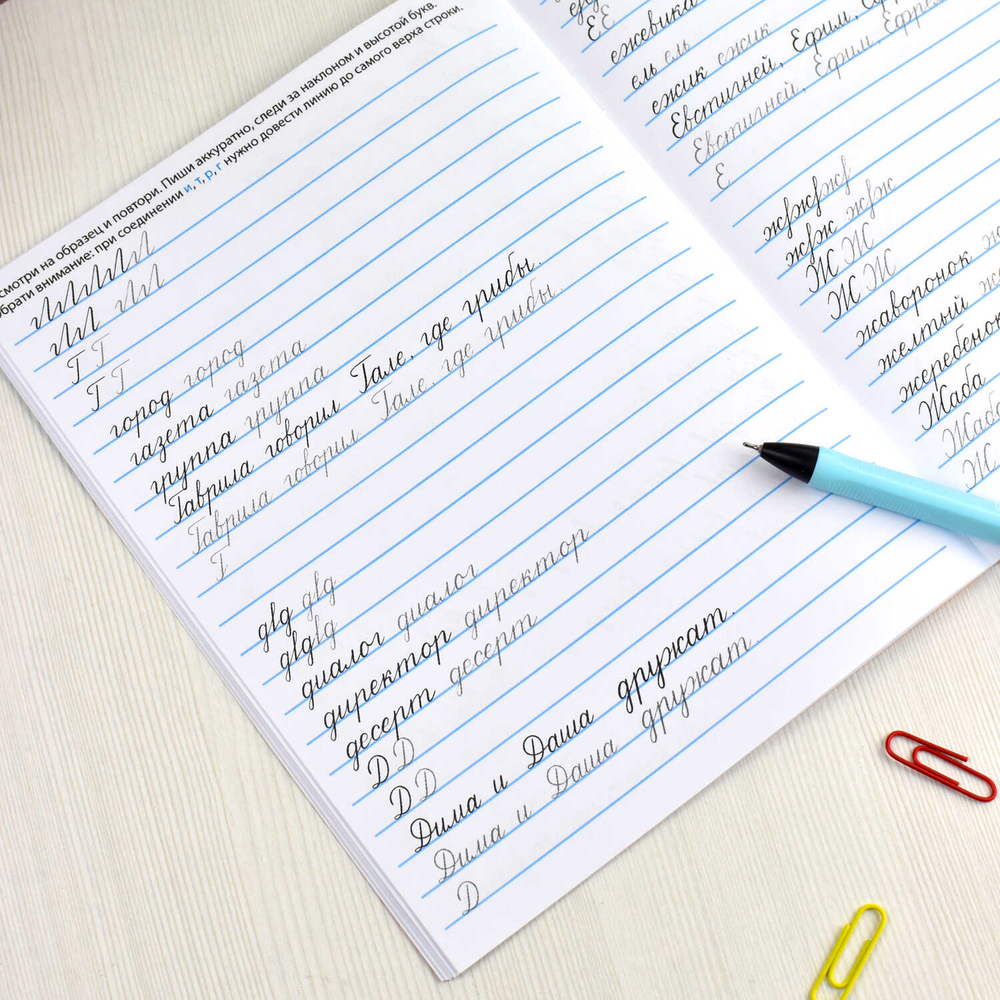 смотри на образец и повтори. Пиши аккуратно, следи за наклоном и высотой букв.
обрати внимание: при соединении и, т, р, г нужно довести линию до самого верха строки.
Г Г
Г Г
город город
газета газета
группа группа
Гаврила говорил Гале, где грибы.
Гаврила говорил Гале, где грибы.
Г
диалог диалог
директор директор
десерт десерт
Д Д
Д Д
Дима и Даша дружат.
Дима и Даша дружат.
Д
Е Е
ежевика
ель ель
ежик ежик
Евстигней, Ефим,
Евстигней, Ефим, Ефр
Е
жжжж
жж жж
Ж Ж Ж
Ж Ж Ж
жаворонок
желтый
жеребенок
Жаба
Жаба
Ж